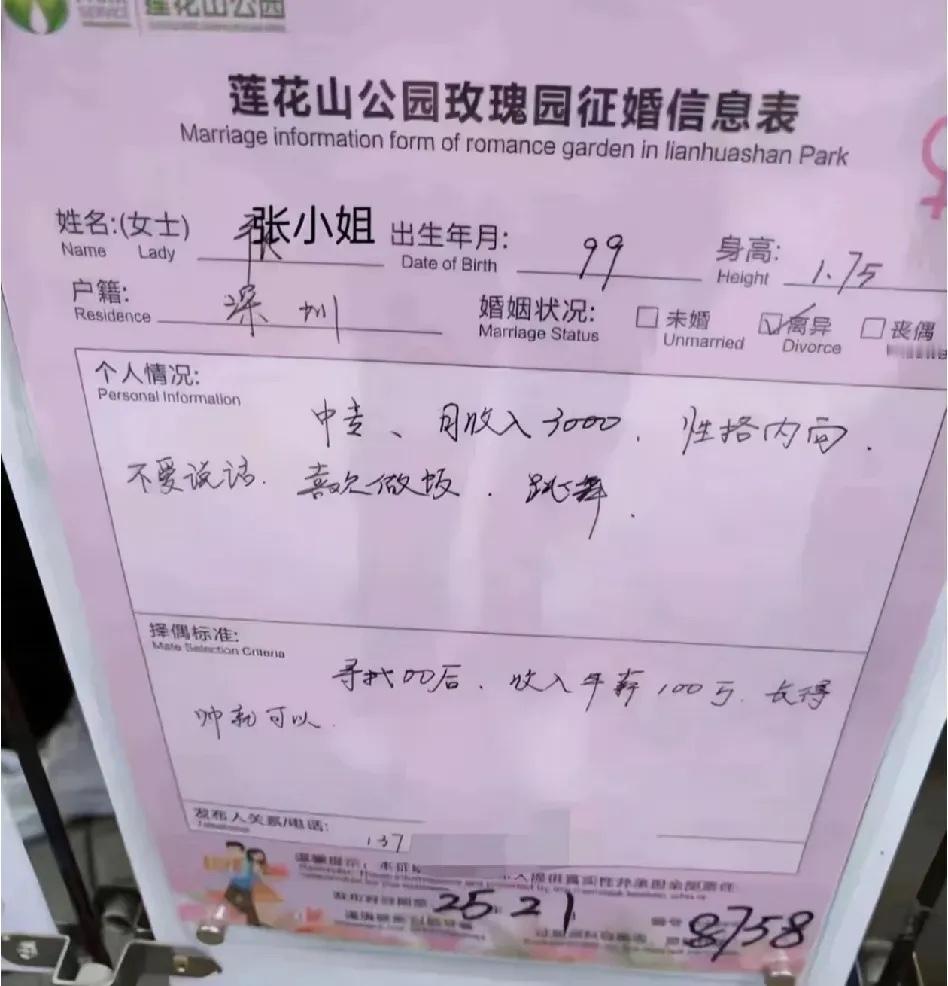 莲花山公园
SERVICE
莲花山公园玫瑰园征婚信息表
Marriage information form of romance garden in lianhuashan Park
姓名:(女士) 张小姐 出生年月: 99 身高: 1.75
Name Lady Date of Birth Height
户籍: 深圳 婚姻状况: 未婚 离异 丧偶
Residence Marriage Status Unmarried Divorce
个人情况:
Personal Information
中专、月收入3000. 性格内向.
不爱说话. 喜欢做饭. 跳舞.
择偶标准:
Mate Selection Criteria
寻找00后、收入年薪100万. 长得
帅就可以.
发布人关系/电话:
137
温馨提示:
人提供真实性并承担全部责任
25.21
编号 8758